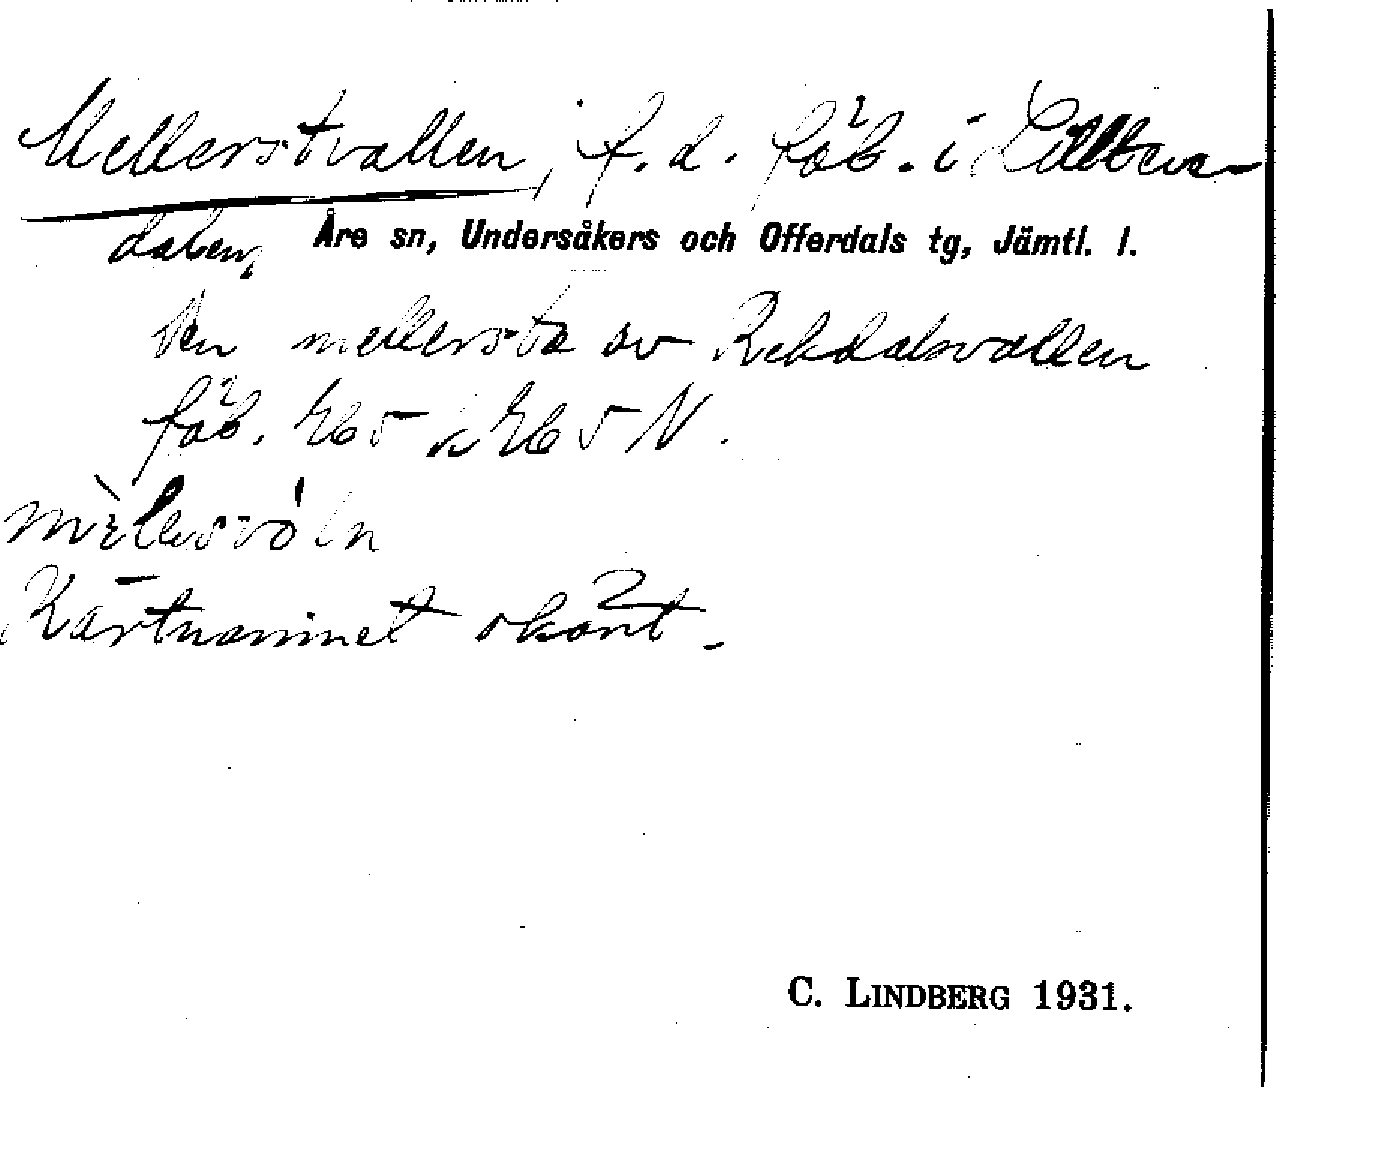 Mellerstvallen, f. d. fäb. i
dalen, Åre sn, Undersåkers och Offerdals tg, Jämtl. l.
Den mellersta av Rekdalsvallen
fäb.
Kartnamnet okänt.
C. LINDBERG 1931.